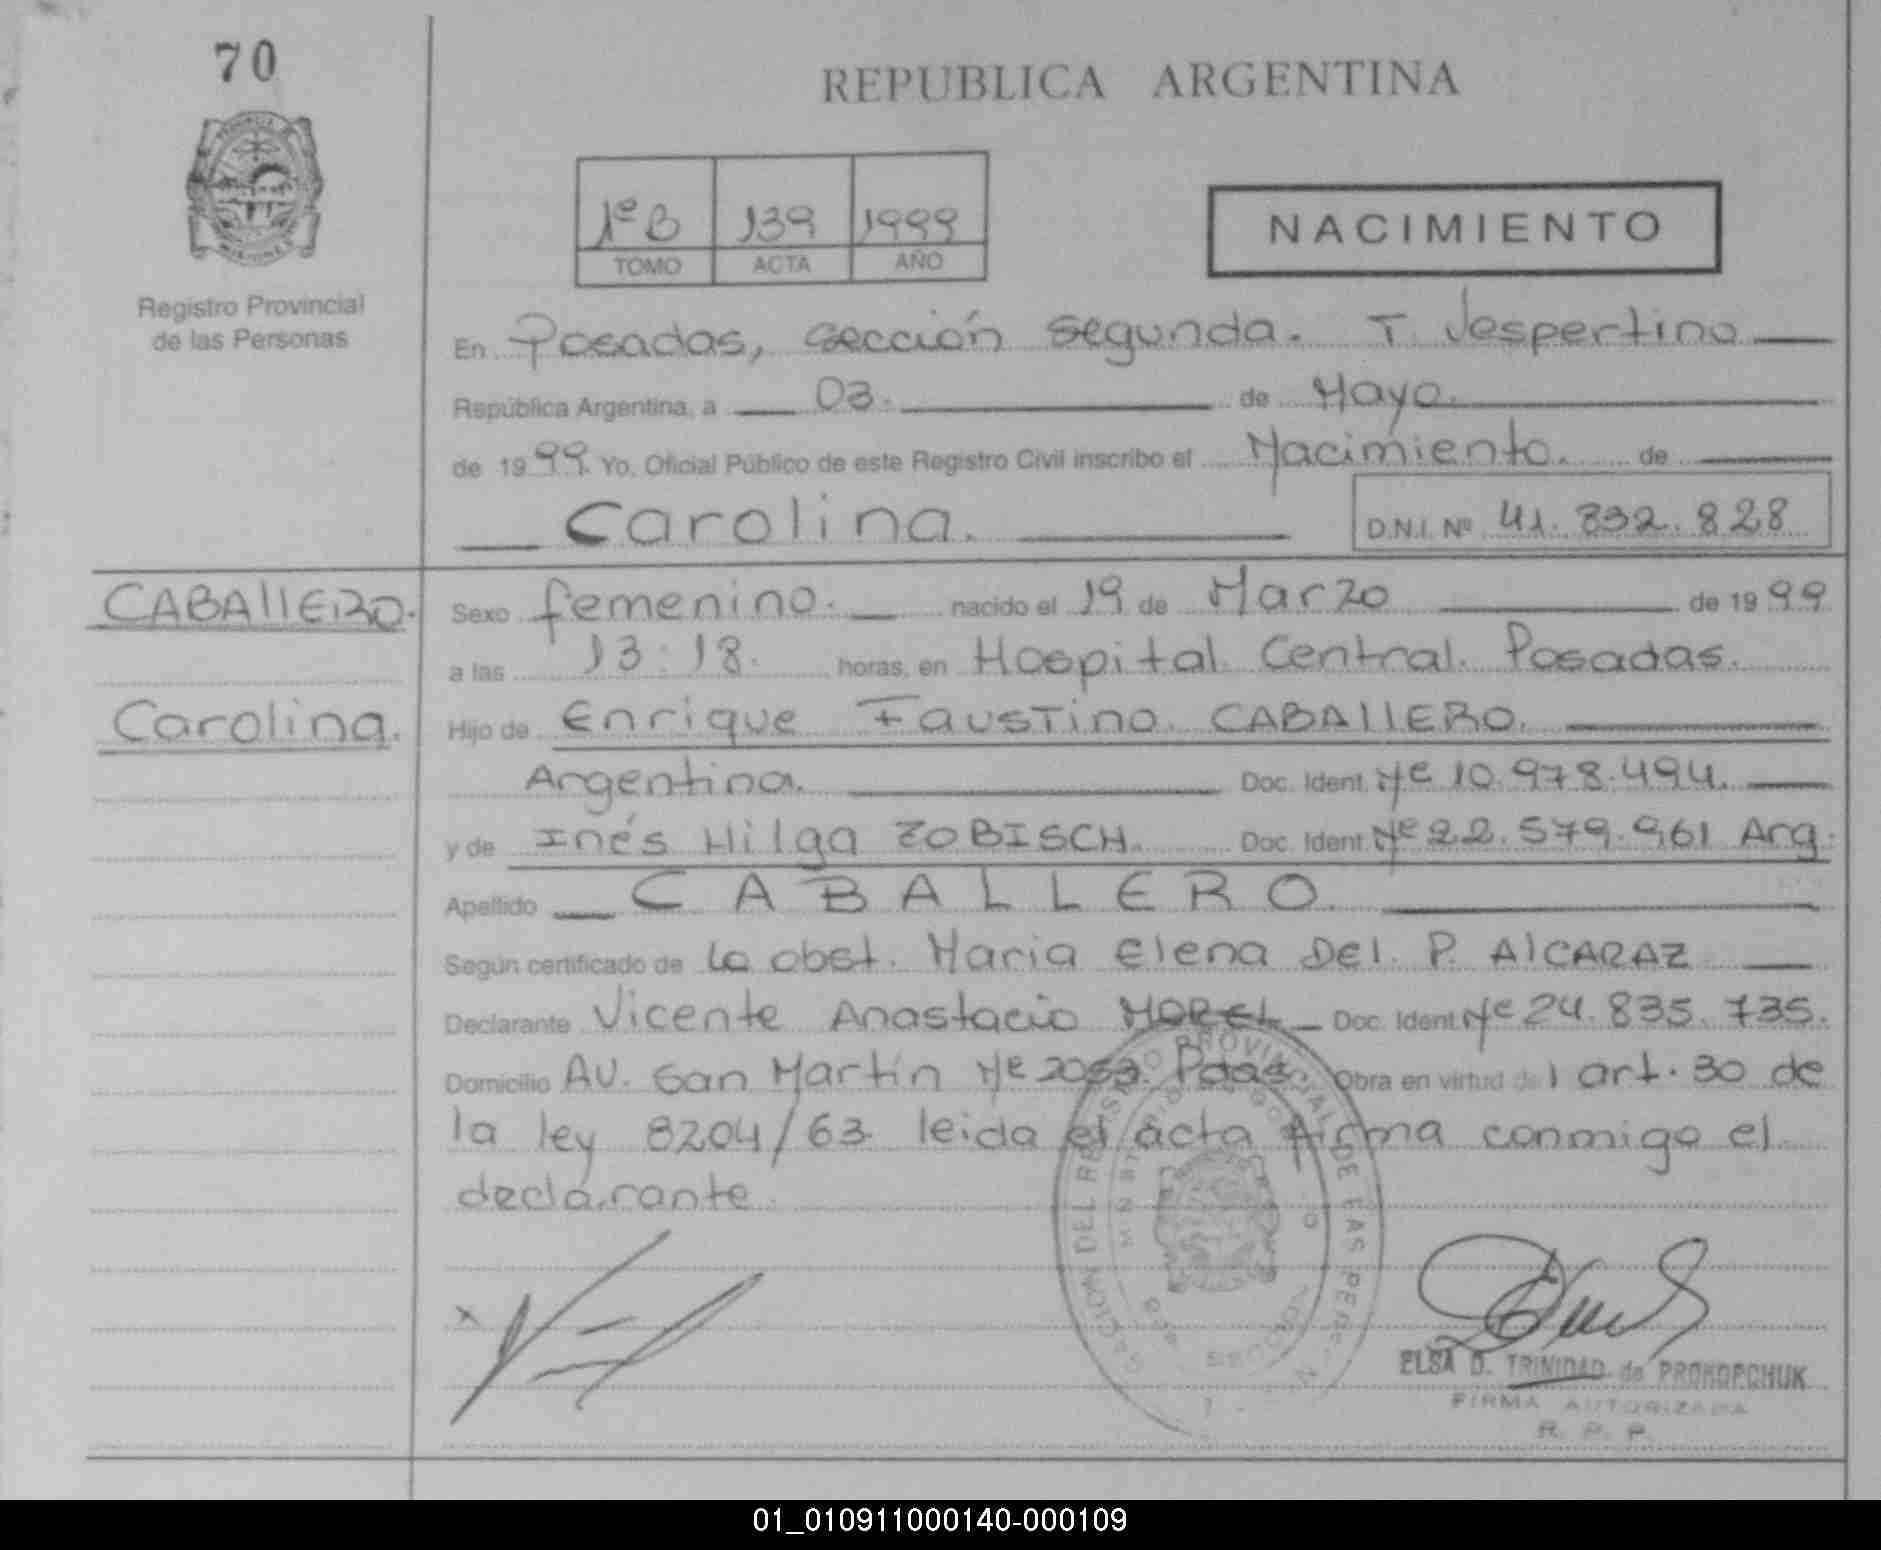 70
REPUBLICA ARGENTINA
1º B 139 1999
TOMO ACTA AÑO
NACIMIENTO
Registro Provincial
de las Personas
En Posadas, sección segunda. T. Vespertino
República Argentina, a 03. de Mayo.
de 1999. Yo, Oficial Público de este Registro Civil inscribo el Nacimiento. de
Carolina.
D.N.I. Nº 41.832.828
CABAllERO.
Carolina.
Sexo femenino. nacido el 19 de Marzo de 1999
a las 13:18. horas, en Hospital Central. Posadas.
Hijo de Enrique Faustino CABAllERO.
Argentina. Doc. Ident. Nº 10.978.494.
y de Inés Hilga ZOBISCH. Doc. Ident. Nº 22.579.961 Arg.
Apellido CABALLERO.
Según certificado de la obst. Maria Elena Del. P. AlCARAZ
Declarante Vicente Anastacio MOREL Doc. Ident. Nº 24.835.735.
Domicilio AV. San Martín Nº 2053. Pdas. Obra en virtud del art. 30 de
la ley 8204/63 leida el acta firma conmigo el
declarante.
PROVINCIAL DE LAS
ELSA D. TRINIDAD de PROKOPCHUK
FIRMA AUTORIZADA
R. P. P.
01_010911000140-000109